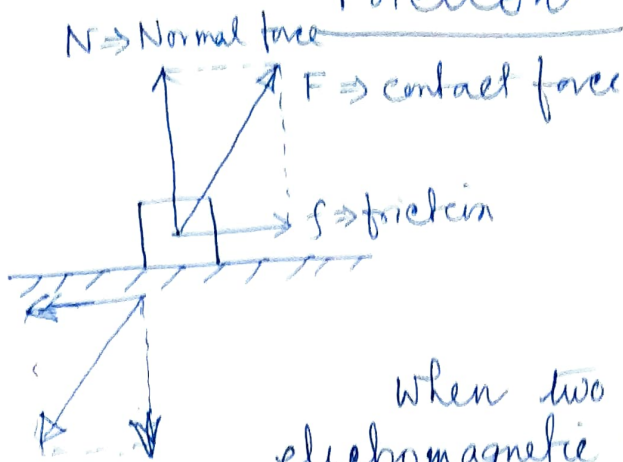 Friction
N ⇒ Normal force
F ⇒ contact force
f ⇒ friction
When two
electromagnetic